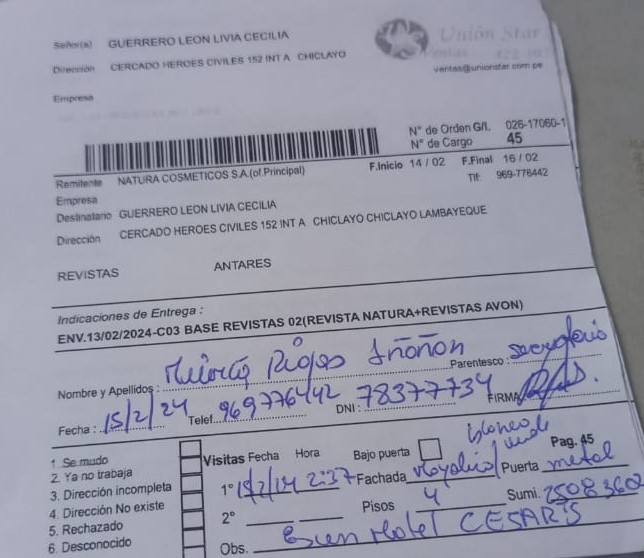 Señor(a) GUERRERO LEON LIVIA CECILIA
Dirección CERCADO HEROES CIVILES 152 INT A CHICLAYO
Empresa
Unión Star
ventas@unionstar.com.pe
N° de Orden G/I. 026-17060-1
N° de Cargo 45
F.Inicio 14 / 02 F.Final 16 / 02
Tlf: 969-776442
Remitente NATURA COSMETICOS S.A.(of.Principal)
Empresa
Destinatario GUERRERO LEON LIVIA CECILIA
Dirección CERCADO HEROES CIVILES 152 INT A CHICLAYO CHICLAYO LAMBAYEQUE
REVISTAS ANTARES
Indicaciones de Entrega :
ENV.13/02/2024-C03 BASE REVISTAS 02(REVISTA NATURA+REVISTAS AVON)
Nombre y Apellidos : Riojas Parentesco :
Fecha : 15/2/24 Telef. 969776442 DNI : 78377734 FIRMA
1. Se mudo
2. Ya no trabaja
3. Dirección incompleta
4. Dirección No existe
5. Rechazado
6. Desconocido
Visitas Fecha Hora Bajo puerta Pag. 45
1° 15/2/24 2:37 Fachada Mayolica/ blanco verde Puerta metal
2° Pisos 4 Sumi. 25083602
Obs. Hotel CESAR'S